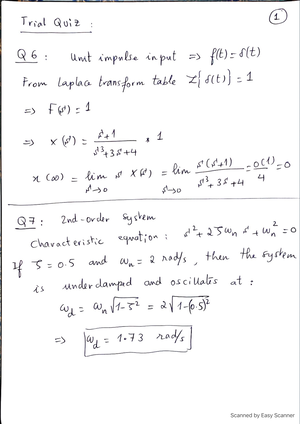 Trial Quiz :
1
Q6 : Unit impulse input => f(t) = δ(t)
From Laplace transform table L{δ(t)} = 1
=> F(s) = 1
=> X(s) = (s+1)/(s³+3s+4) * 1
x(∞) = lim s→0 s X(s) = lim s→0 s(s+1)/(s³+3s+4) = 0(1)/4 = 0
Q7 : 2nd-order System
Characteristic equation : s² + 2ζωn s + ωn² = 0
If ζ = 0.5 and ωn = 2 rad/s, then the system
is underdamped and oscillates at :
ωd = ωn√(1-ζ²) = 2√(1-(0.5)²)
=> ωd = 1.73 rad/s
Scanned by Easy Scanner